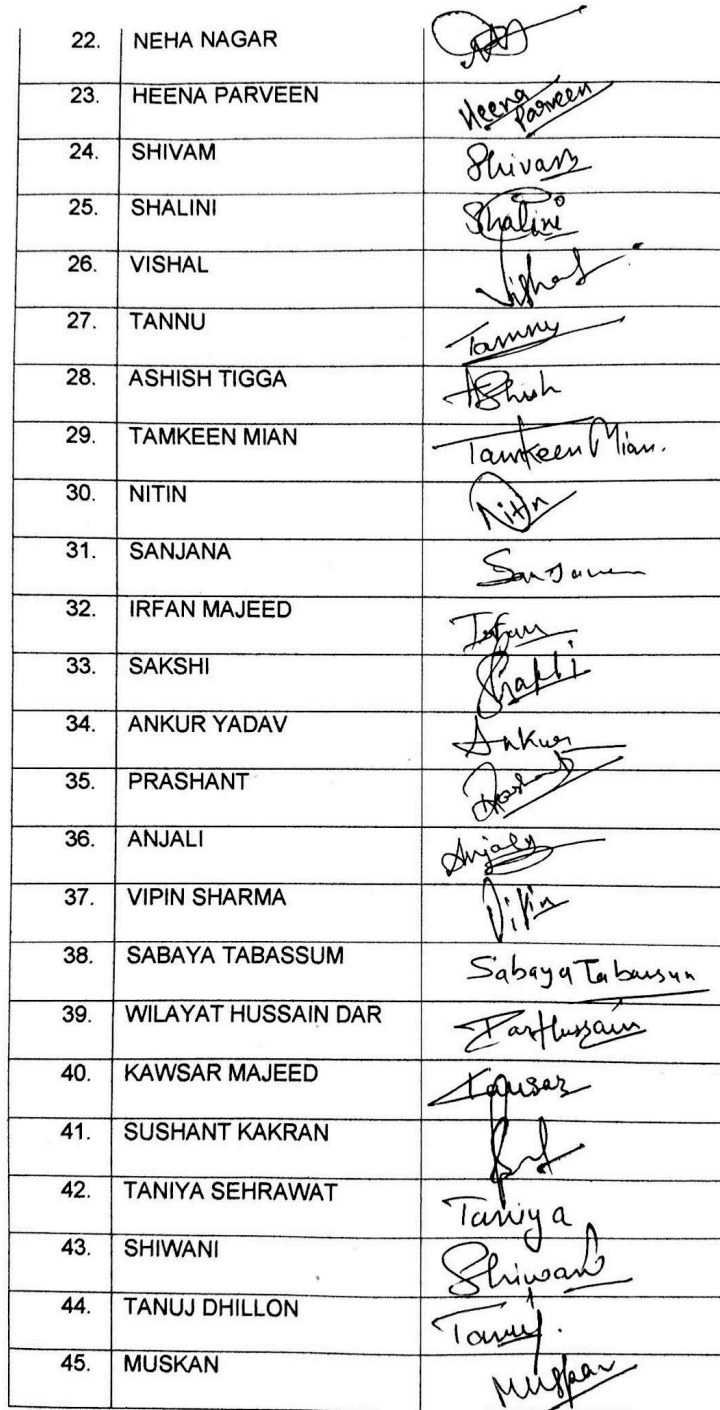 22. NEHA NAGAR
23. HEENA PARVEEN Heena Parveen
24. SHIVAM Shivam
25. SHALINI Shalini
26. VISHAL Vishal
27. TANNU Tannu
28. ASHISH TIGGA Ashish
29. TAMKEEN MIAN Tamkeen Mian.
30. NITIN Nitin
31. SANJANA
32. IRFAN MAJEED Irfan
33. SAKSHI Sakshi
34. ANKUR YADAV Ankur
35. PRASHANT Prashant
36. ANJALI Anjali
37. VIPIN SHARMA Vipin
38. SABAYA TABASSUM Sabaya Tabassum
39. WILAYAT HUSSAIN DAR Dar Hussain
40. KAWSAR MAJEED Kawsar
41. SUSHANT KAKRAN
42. TANIYA SEHRAWAT Taniya
43. SHIWANI Shiwani
44. TANUJ DHILLON Tanuj.
45. MUSKAN Muskan